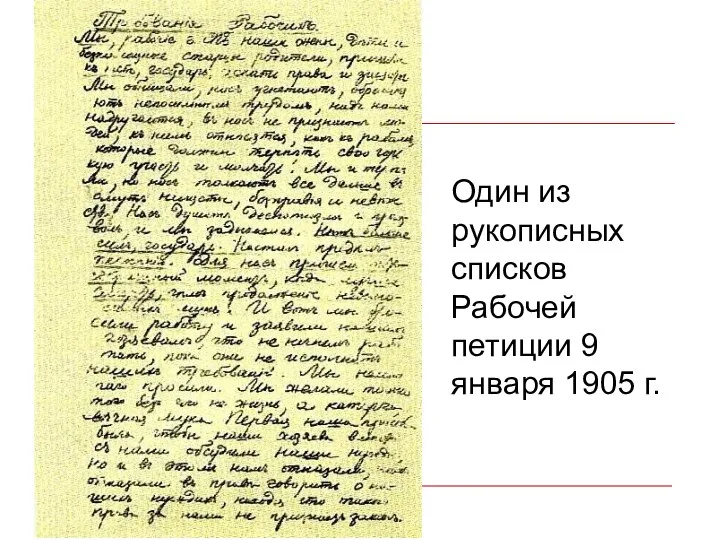 Требованія Рабочихъ.
Мы, рабочіе г. СПБ наши жены, дѣти и
безпомощные старцы родители, пришли
къ тебѣ, государь, искати права и защиты
Мы обнищали, насъ угнетаютъ, обременя
ютъ непосильнымъ трудомъ, надъ нами
надругаются, въ насъ не признаютъ лю
дей, къ намъ относятся, какъ къ рабамъ
которые должны терпѣть свою горь
кую участь и молчать! Мы и терпѣ
ли, но насъ толкаютъ все дальше въ
омутъ нищеты, безправья и невѣж
ства. Насъ душитъ деспотизмъ и произ
волъ, и мы задыхаемся. Нѣтъ больше
силъ, государь. Насталъ предѣлъ
терпѣнія. Для насъ пришелъ
моментъ, когда лучше
смерть, чѣмъ продолженіе невыно
симыхъ мукъ. И вотъ мы бро
сили работу и заявили нашимъ
хозяевамъ, что не начнемъ рабо
тать, пока они не исполнятъ
нашихъ требованій. Мы немно
гаго просили. Мы желали только
того безъ чего не жизнь, а каторга
вѣчная мука Первая наша просьба
была, чтобы наши хозяева вмѣстѣ
съ нами обсудили наши нужды,
но и въ этомъ намъ отказали, намъ
отказали въ правѣ говорить о на
шихъ нуждахъ, находя что такого
права за нами не признаетъ законъ.
Один из
рукописных
списков
Рабочей
петиции 9
января 1905 г.